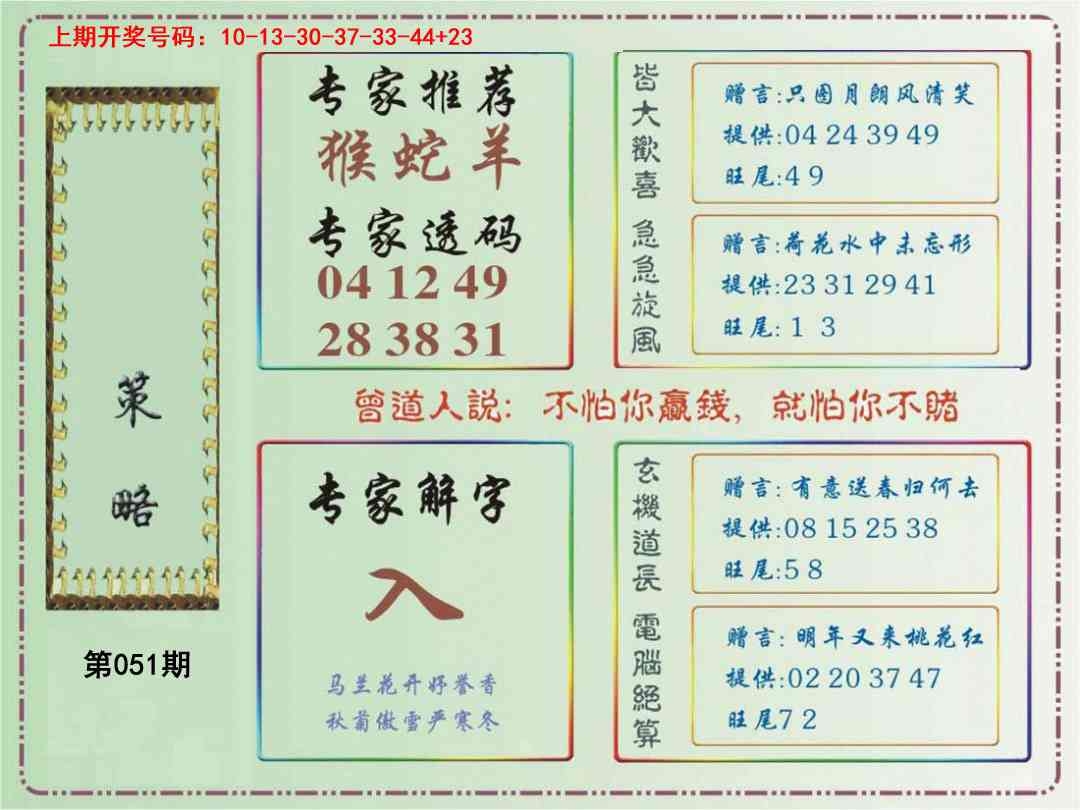 上期开奖号码：10-13-30-37-33-44+23
策略
第051期
专家推荐
猴蛇羊
专家透码
04 12 49
28 38 31
皆大歡喜
赠言:只图月朗风清笑
提供:04 24 39 49
旺尾:4 9
急急旋風
赠言:荷花水中未忘形
提供:23 31 29 41
旺尾:1 3
曾道人説：不怕你贏錢，就怕你不賭
专家解字
入
马兰花开好誉香
秋菊傲雪严寒冬
玄機道長
赠言:有意送春归何去
提供:08 15 25 38
旺尾:5 8
電腦絕算
赠言:明年又来桃花红
提供:02 20 37 47
旺尾7 2